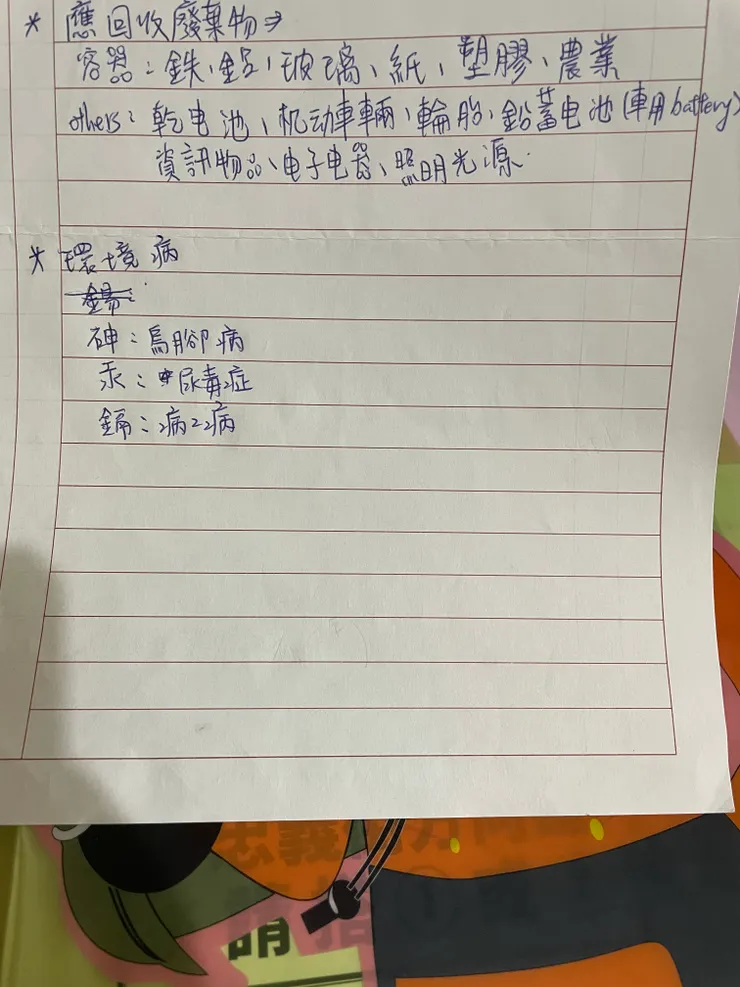 * 應回收廢棄物⇒
容器:鉄、鋁、玻璃、紙、塑膠、農業
others:乾电池、机动車輛、輪胎、鉛蓄电池(車用battery)
資訊物品、电子电器、照明光源.
* 環境病
砷:烏腳病
汞:尿毒症
鎘:痛2病
請